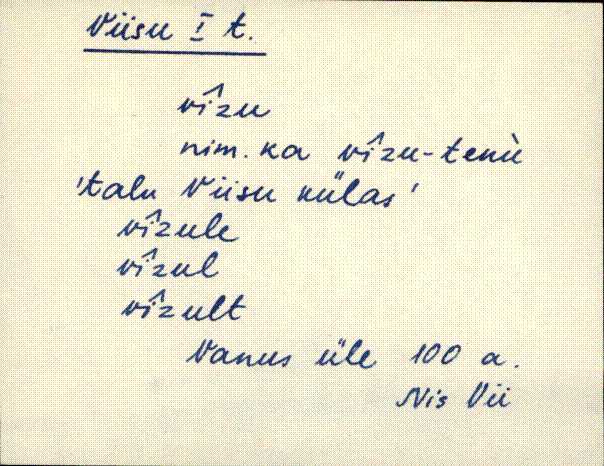 Viisu I t.
vîzu
nim. ka vîzu-tenù
'talu Viisu külas'
vîzule
vîzul
vîzult
Vanus üle 100 a.
Nis Vii